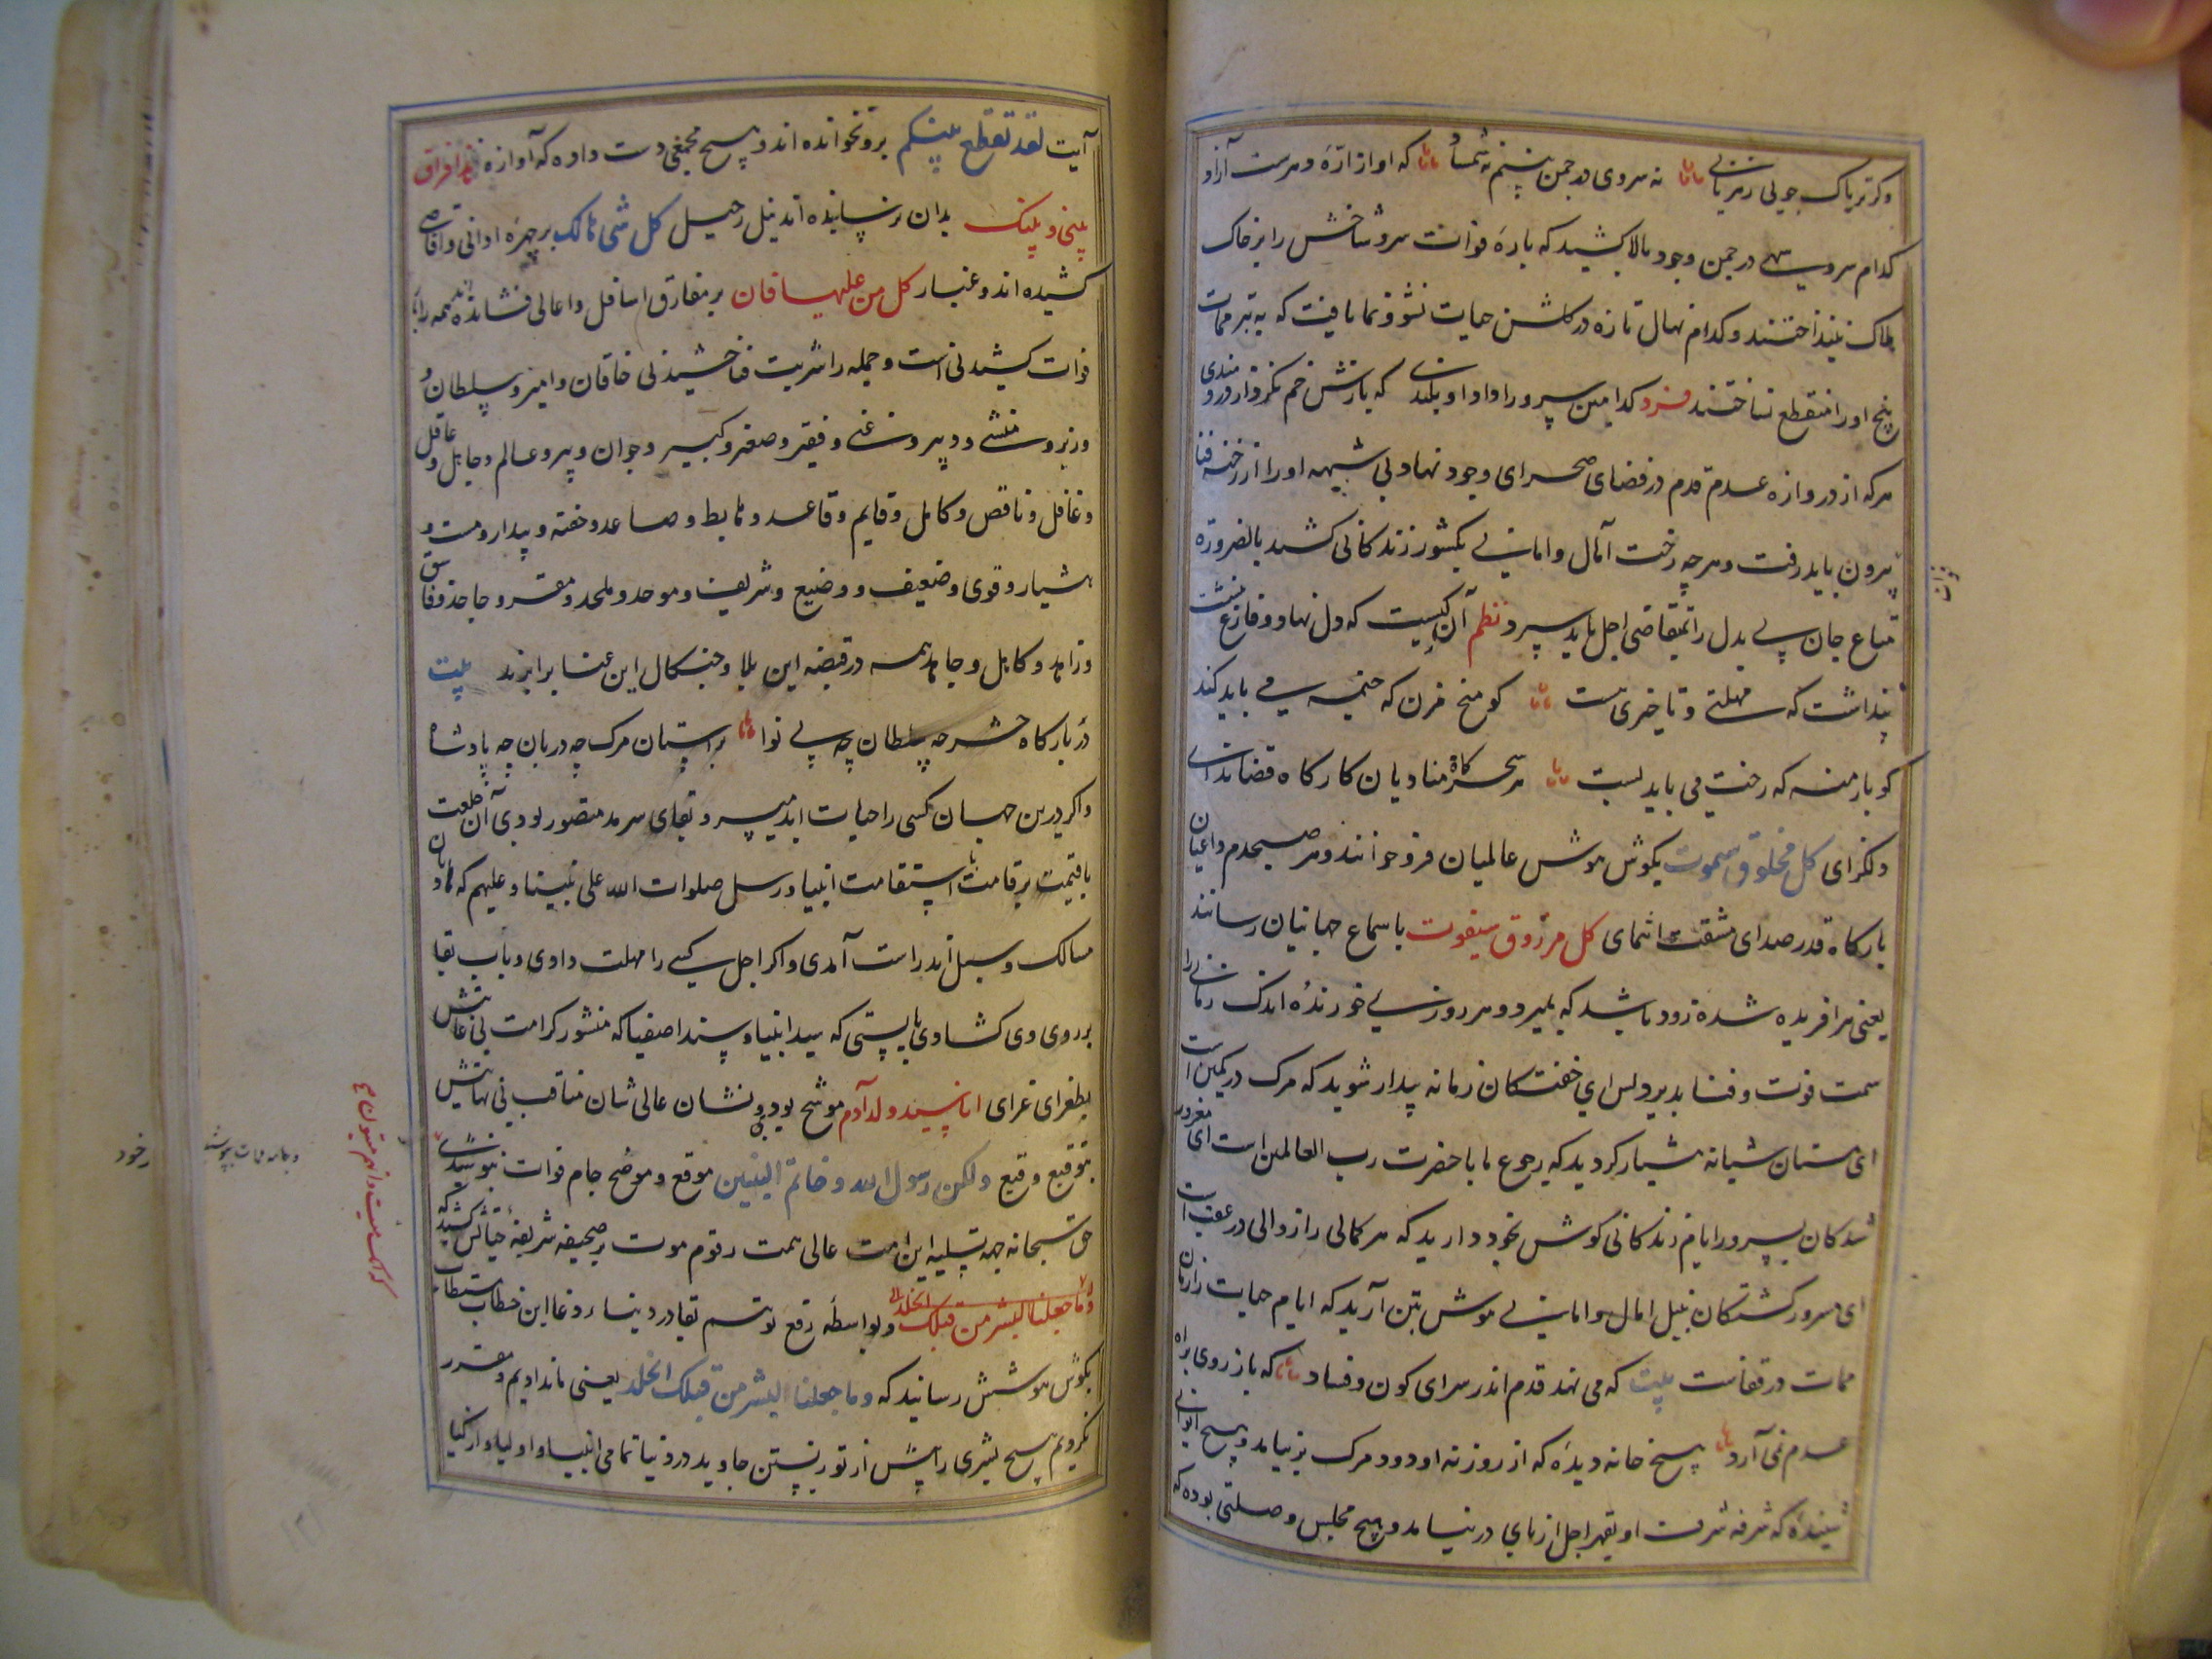 وکر تریاک جویی زهر یابی نه سروی در چمن بینم نه شمشاد که او از اره دهرست آزاد
کدام سرو سهی در چمن وجود بالا کشید که باره فوات سرو شاخش را بر خاک
هلاک نینداختند و کدام نهال تازه در کلشن حیات نشو و نما یافت که به تبر ممات
بیخ او را منقطع نساختند فرد کدامین سرو را داد او بلندی که بازش خم نکرد از دردمندی
هر که از دروازه عدم قدم در فضای صحرای وجود نهاد بی شبهه او را از رخنه فنا
بیرون باید رفت و هر چه رخت آمال و امانی بکشور زندکانی کشید بالضروره
متاع جان بی بدل را بمتقاضی اجل باید سپرد نظم آن کیست که دل نهاد و فارغ بنشست
پنداشت که مهلتی و تاخیری هست کو میخ مزن که خیمه می باید کند
کو بار منه که رخت می باید بست هر سحرکاه منادیان کارکاه قضا ندای
دلکزای کل مخلوق سیموت بکوش هوش عالمیان فرو خوانند و هر صبحدم داعیان
بارکاه قدر صدای مشقت انتمای کل مرزوق سیفوت باسماع جهانیان رسانند
یعنی هر آفریده شده زود باشد که بمیرد و هر روزی خورنده اندک زمانی را
سمت فوت و فنا پذیرد پس ای خفتکان زمانه بیدار شوید که مرک در کمین است
ای مستان شبانه هشیار کردید که رجوع ما با حضرت رب العالمین است ای مغرور
شدکان بسرور ایام زندکانی کوش بخود دارید که هر کمالی را زوالی در عقب است
ای سرور کشتکان بنیل آمال و امانی هوش بتن آرید که ایام حیات را زمان
ممات در قفاست بیت که می نهد قدم اندر سرای کون و فساد که باز روی براه
عدم نمی آرد هیچ خانه دیده که از روزنه او دود مرک بر نیامد و هیچ ایوانی
شنیده که شرفه شرفت او بقهر اجل از پای در نیامد و هیچ مجلس وصلتی بوده که
آیت لقد تقطع بینکم برو نخوانده اند و هیچ مجمعی دست داده که آوازه هذا فراق
بینی و بینک بدان نرسانیده اند نیل رحیل کل شی هالک بر چهره ادانی و اقاصی
کشیده اند و غبار کل من علیها فان بر مفارق اسافل و اعالی فشانده اند همه را
فوات کشیدنی است و جمله را شربت فنا چشیدنی خاقان و امیر و سلطان و
وزیر و منشی و دبیر و غنی و فقیر و صغیر و کبیر و جوان و پیر و عالم و جاهل و عاقل
و غافل و ناقص و کامل و قایم و قاعد و هابط و صاعد و خفته و بیدار و مست و
هشیار و قوی و ضعیف و وضیع و شریف و موحد و ملحد و مقر و جاحد و فاسق
و زاهد و کاهل و جاهد همه در قبضه این بلا و چنکال این عنا برابرند بیت
در بارکاه حشر چه سلطان چه بی نوا بر آستان مرک چه دربان چه پادشاه
و اکر درین جهان کسی را حیات ابد میسر و بقای سرمد متصور بودی آن خلعت
با قیمت بر قامت با استقامت انبیا و رسل صلوات الله علی نبینا و علیهم که هادیان
مسالک و سبل اند راست آمدی و اکر اجل کسی را مهلت دادی و باب بقا
بر روی وی کشادی بایستی که سید انبیا و سند اصفیا که منشور کرامت بی غایتش
بطغرای غرای انا سید ولد آدم موشح بود و نشان عالی شان مناقب بی نهایتش
بتوقیع وقیع ولکن رسول الله و خاتم النبیین موقع و موضح جام فوات ننوشیدی
حق سبحانه جهه تسلیه این امت عالی همت رقوم موت بر صحیفه شریفه حیاتش کشید که
وما جعلنا لبشر من قبلک الخلد و بواسطه رفع توهم بقا در دنیا این خطاب مستطاب
بکوش هوشش رسانید که وما جعلنا لبشر من قبلک الخلد یعنی ما ندادیم و مقرر
نکردیم هیچ بشری را پیش از تو زیستن جاوید در دنیا تمامی انبیا و اولیا و ازکیا
که انک میت و انهم میتون
و جامه ممات بپوشند